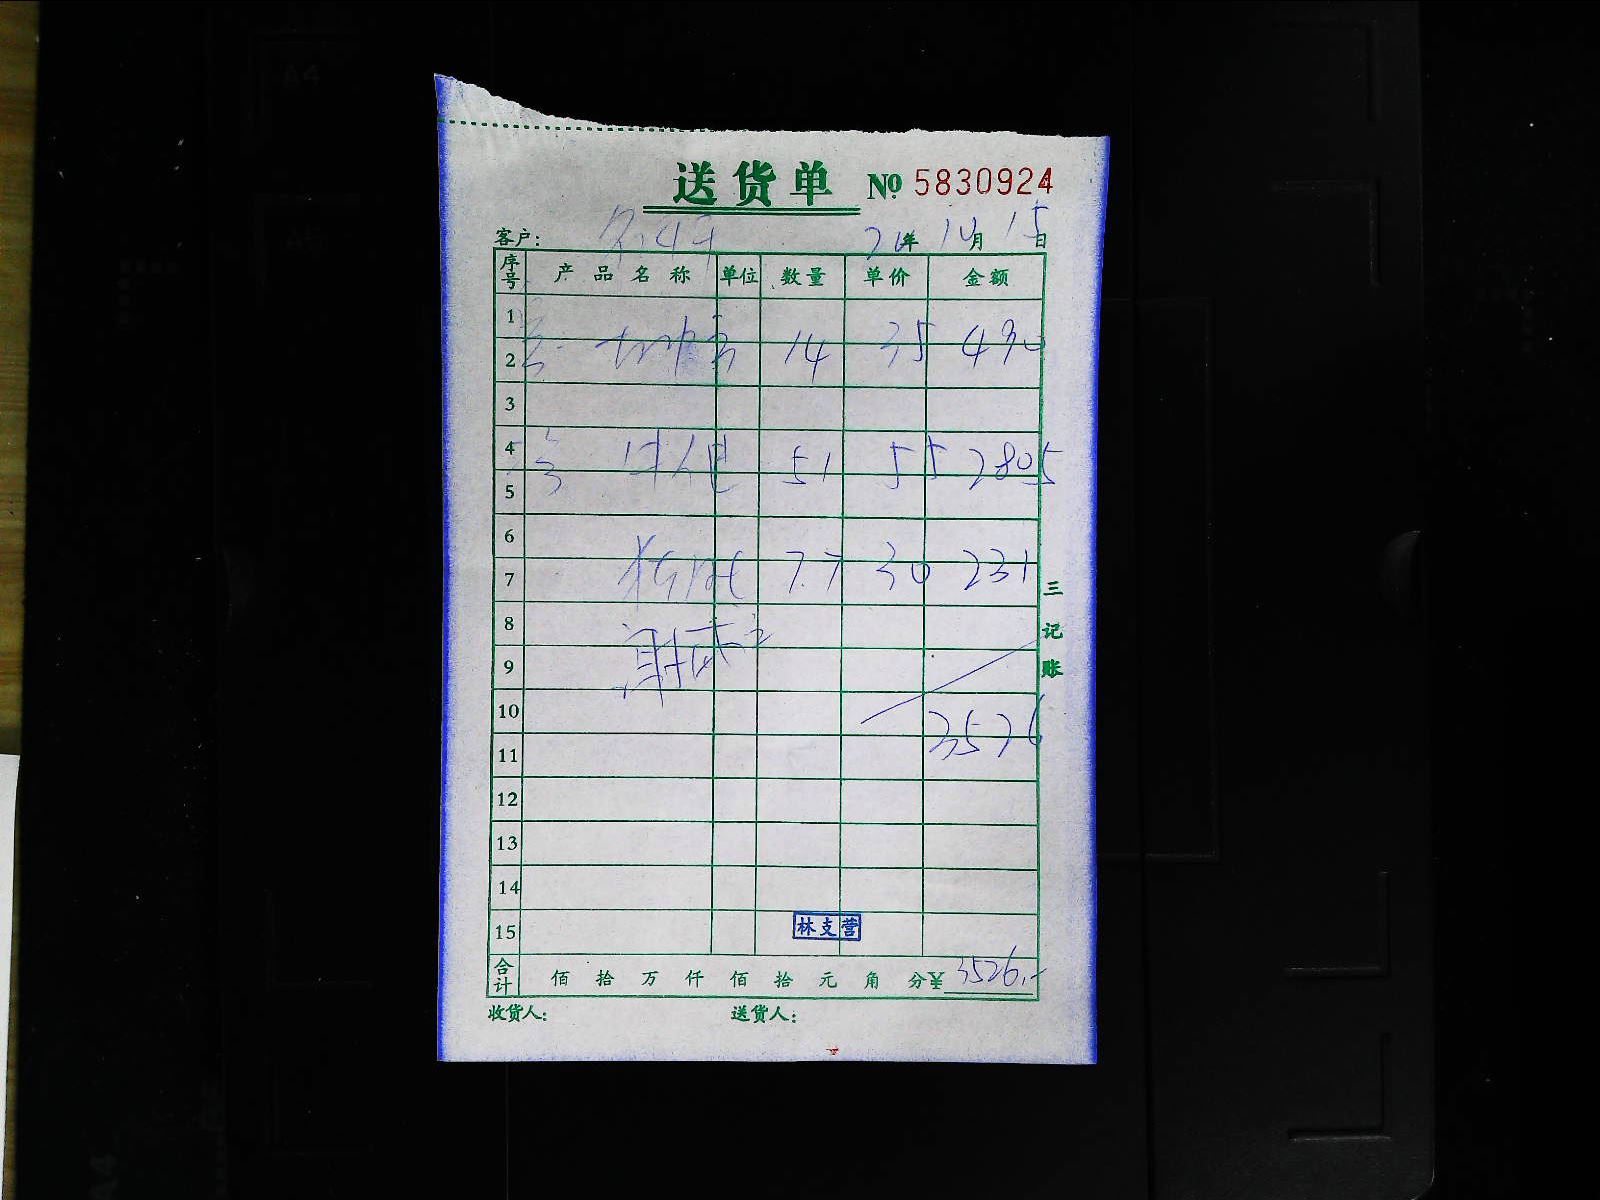 送货单 № 5830924
客户: 21年 10月 15日
序号 产品名称 单位 数量 单价 金额
1
2 14 35 490
3
4 51 55 2805
5
6
7 7.7 30 231
8
9
10
11 3526
12
13
14
15 林支营
合计 佰 拾 万 仟 佰 拾 元 角 分 ¥ 3526.-
收货人: 送货人:
三记账